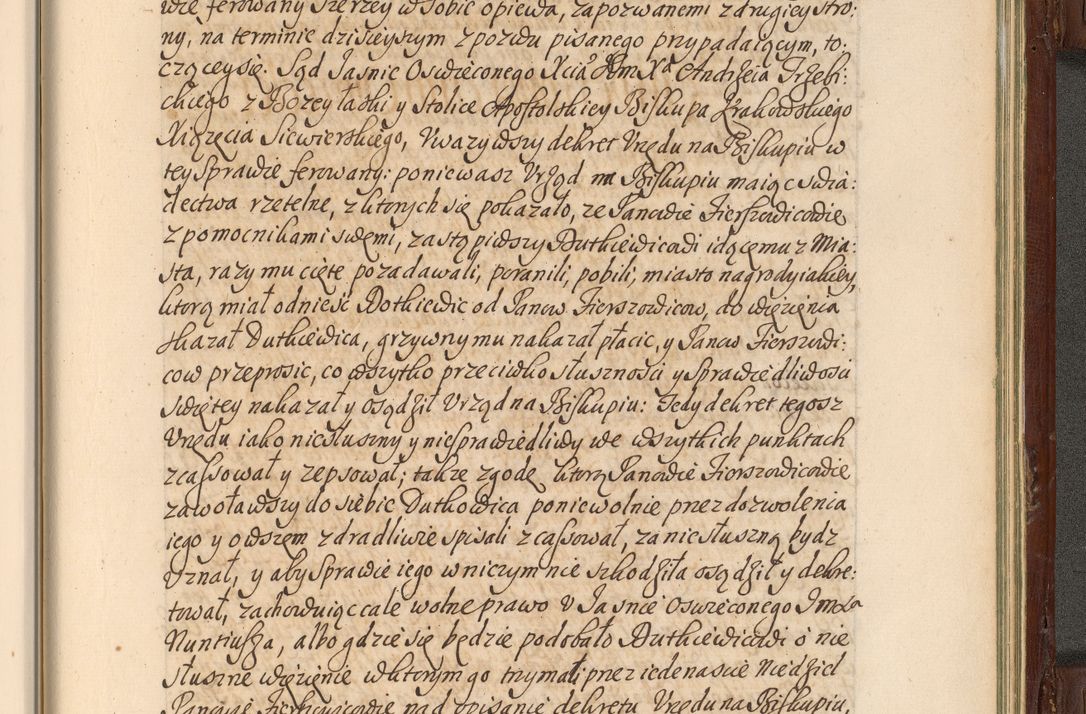 wie ferowany szerzey w sobie opiewa, zapozwanemi z drugiey stro:
ny, na terminie dzisieyszym z pozwu pisanego przypadaiącym, to:
czącey się. Sąd Jasnie Oswieconego Xcia Jm Xa Andrzeia Trzebi:
ckiego z Bożey łaski y Stolice Apostolskiey Biskupa Krakowskiego
Xiązęcia Siewierskiego, Uwazywszy dekret Urzędu na Biskupiu w
tey Sprawie ferowany: poniewasz Urząd na Biskupiu maiąc swia:
dectwa rzetelne, z ktorych się pokazało, ze Panowie Fierszowicowie
z pomocnikami swemi, zastąpiwszy Dutkiewicowi idącemu z Mia:
sta, razy mu cięte pozadawali, poranili, pobili, miasto nagrody iakiey,
ktorą miał odnieść Dotkiewic od Panow Fierszowicow, do więzienia
skazał Dutkiewica, grzywny mu nakazał płacic, y Panow Fierszowi:
cow przeprosic, co wszytko przeciwko słusznosci y sprawiedliwosci
swiętey nakazał y osądził Urząd na Biskupiu: Tedy dekret tegosz
Urzędu iako niesłuszny y niesprawiedliwy we wszytkich punktach
zcassował y zepsował; takze zgodę, ktorą Panowie Fierszowicowie
zawoławszy do siebie Dutkowica poniewolnie przez dozwolenia
iego y owszem zdradliwie spisali zcassował, za niesłuszną bydz
uznał, y aby Sprawie iego w niczym nie szkodziła osądził y dekre:
tował, zachowuiąc cale wolne prawo U Jasnie Oswieconego Jmxa
Nuntiusza, albo gdzie się będzie podobało Dutkiewicowi o nie
słuszne więzienie w ktorym go trzymali przez iedenascie Niedziel
Panowie Fierszowicowie nad opisanie dekretu Urzędu na Biskupiu,